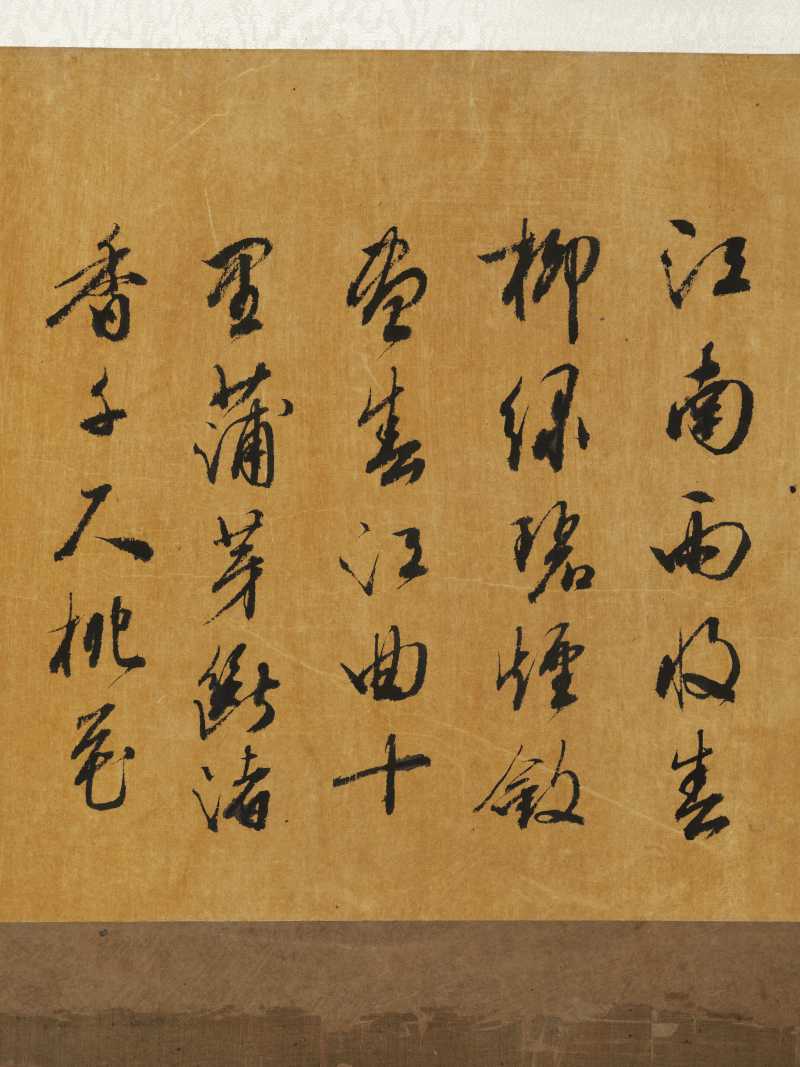 江南雨收春
柳綠碧煙斂
盡春江曲十
里蒲芽斷渚
香千尺桃花